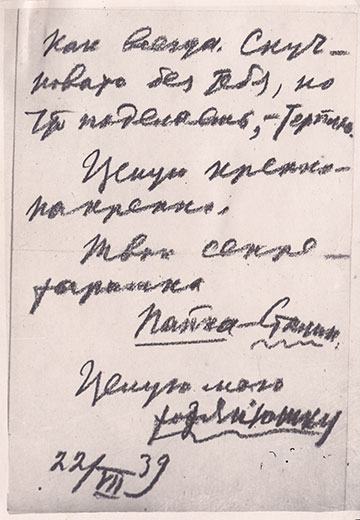 Как всегда. Скуч-
новато без тебя, но
что поделаешь, – терплю.
Целую крепко-
накрепко.
Твой секре-
таришка
Папка-Сталин.
Целую мою
хозяюшку
22/VII 39